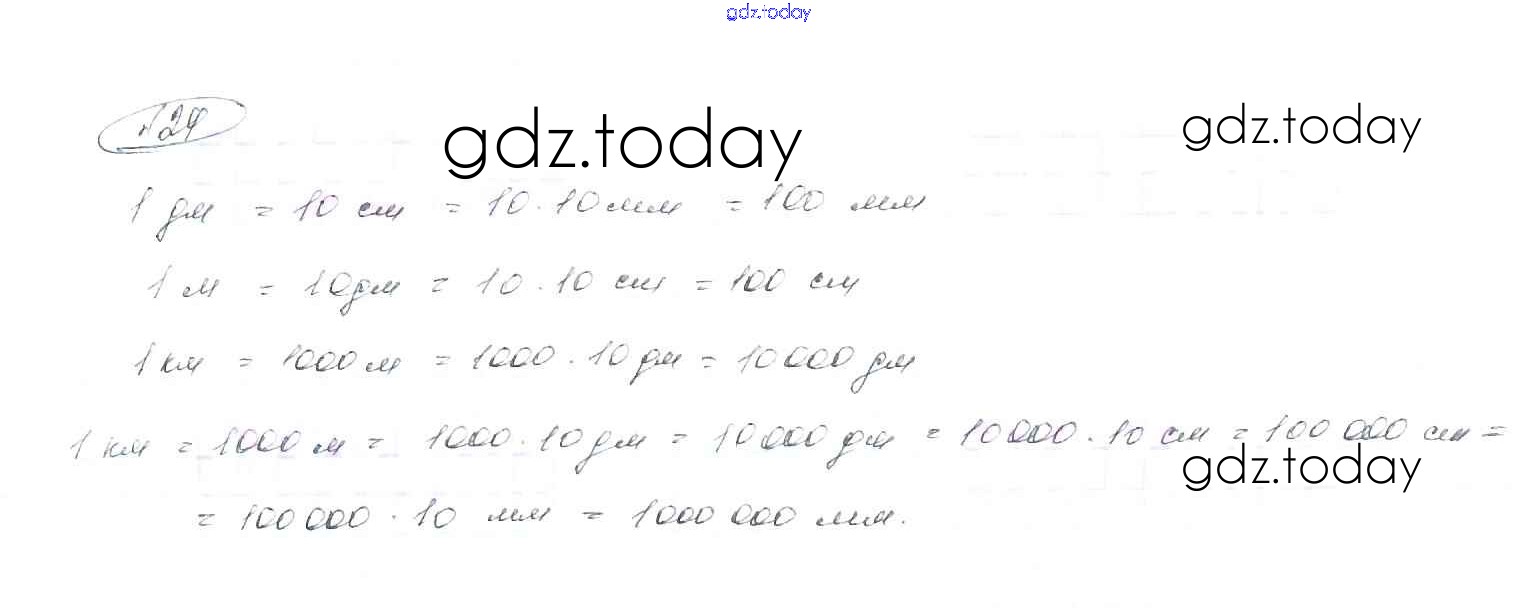 gdz.today
№24
gdz.today
gdz.today
1 дм = 10 см = 10 · 10 мм = 100 мм
1 м = 10 дм = 10 · 10 см = 100 см
1 км = 1000 м = 1000 · 10 дм = 10 000 дм
1 км = 1000 м = 1000 · 10 дм = 10 000 дм = 10 000 · 10 см = 100 000 см =
gdz.today
= 100 000 · 10 мм = 1000 000 мм.